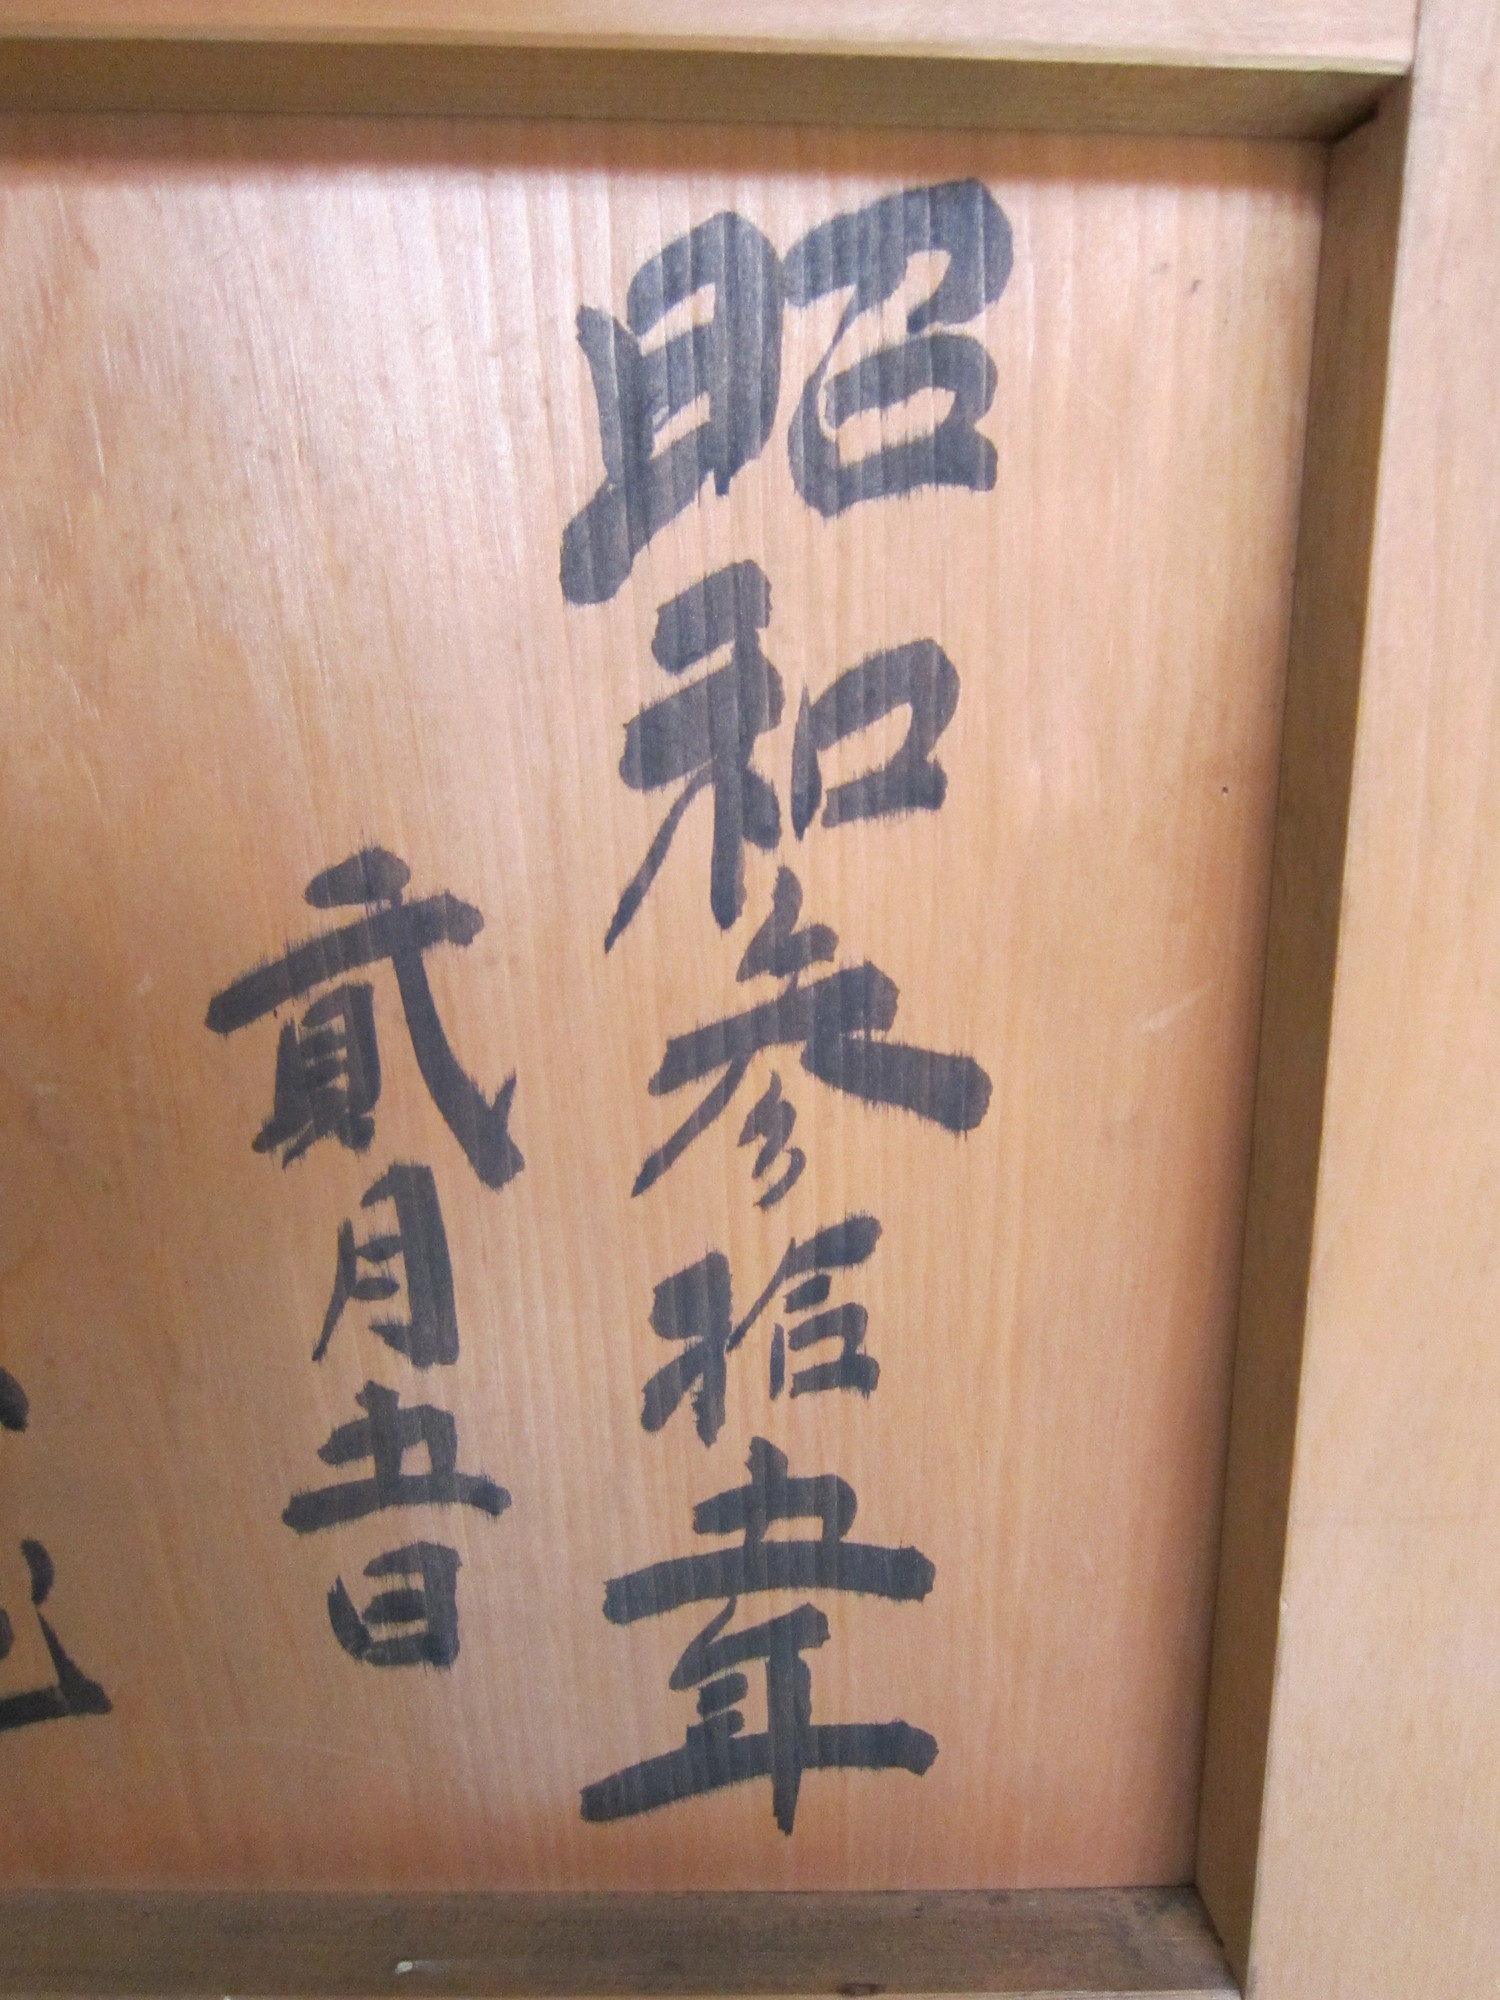 昭和参拾五年
貳月五日